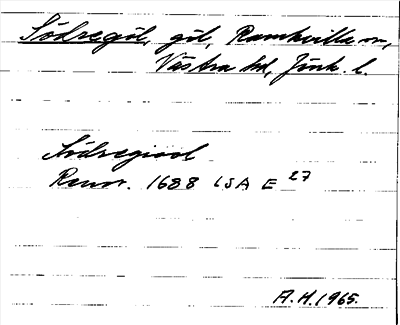 Södregöl, göl, Ramkvilla sn,
Västra hd, Jönk. l.
Södregiööl
Renov. 1688 LSA E 27
A.H. 1965.